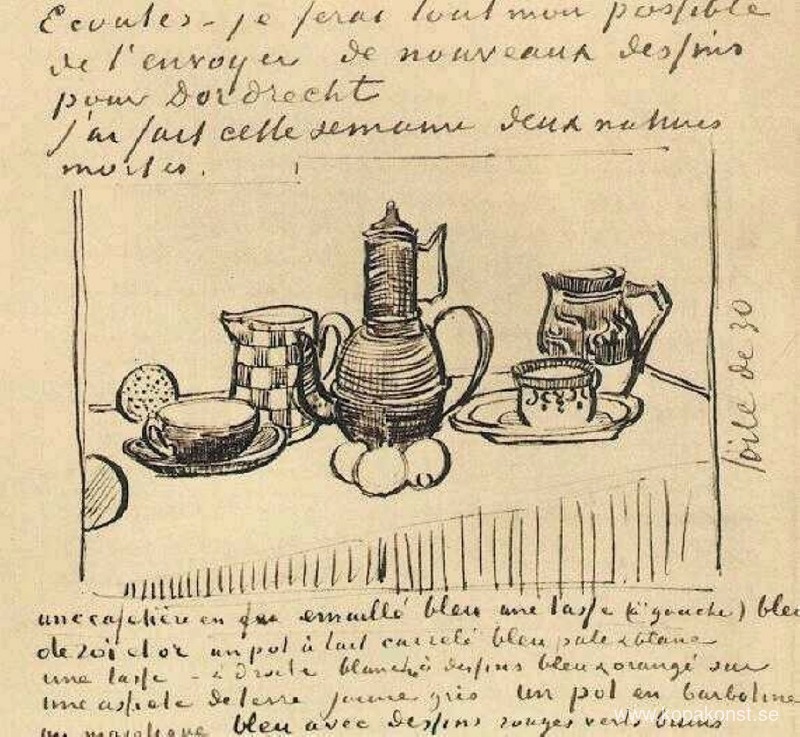 Ecoutes - je ferai tout mon possible
de t'envoyer de nouveaux dessins
pour Dordrecht
j'ai fait cette semaine deux natures
mortes.
toile de 30
une cafetière en fer emaillé bleu une tasse (à gauche) bleu
de roi et or un pot à lait carrelé bleu pale & blanc
une tasse - à droite blanche à dessins bleu & orangé sur
une assiete de terre jaune gris un pot en barbotine
ou majolique bleu avec dessins rouges verts bruns
www.kopakonst.se